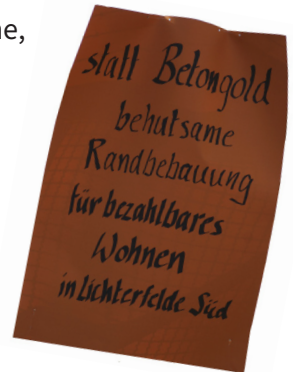 ne,
statt Betongold
behutsame
Randbebauung
für bezahlbares
Wohnen
in Lichterfelde Süd